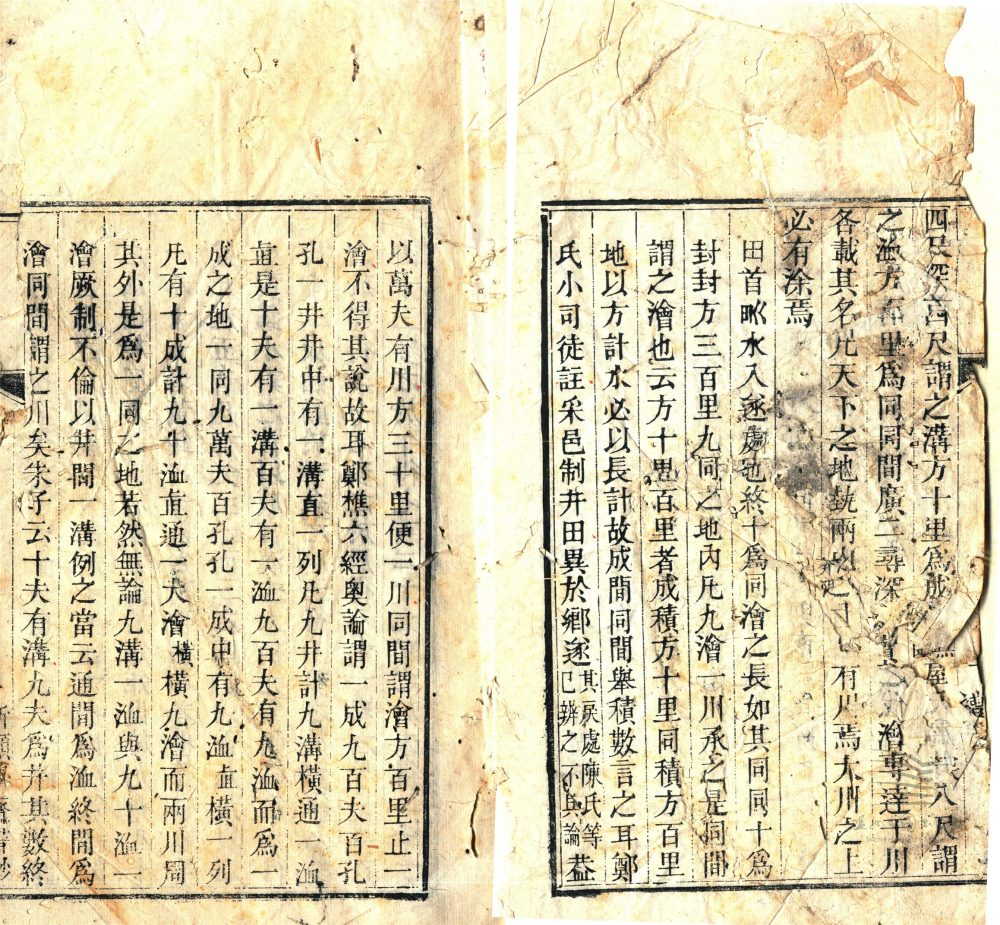 四尺深四尺謂之溝方十里為成 八尺謂
之洫方百里為同同間廣二尋深 澮專達于川
各載其名凡天下之地埶兩山之 有川焉大川之上
必有涂焉
田首𤰕水入遂處也終十為同澮之長如其同同十為
封封方三百里九同之地內凡九澮一川承之是同間
謂之澮也云方十里百里者成積方十里同積方百里
地以方計水必以長計故成間同間舉積數言之耳鄭
氏小司徒註采邑制井田異於鄉遂其戾處陳氏等已辨之不具論蓋
以萬夫有川方三十里便一川同間謂澮方百里止一
澮不得其說故耳鄭樵六經奧論謂一成九百夫百孔
孔一井井中有一溝直一列凡九井計九溝橫通一洫
直是十夫有一溝百夫有一洫九百夫有九洫而為一
成之地一同九萬夫百孔孔一成中有九洫直橫一列
凡有十成計九十洫直通一大澮橫橫九澮而兩川周
其外是為一同之地若然無論九溝一洫與九十洫一
澮厥制不倫以井間一溝例之當云通間為洫終間為
澮同間謂之川矣朱子云十夫有溝九夫為井其數終